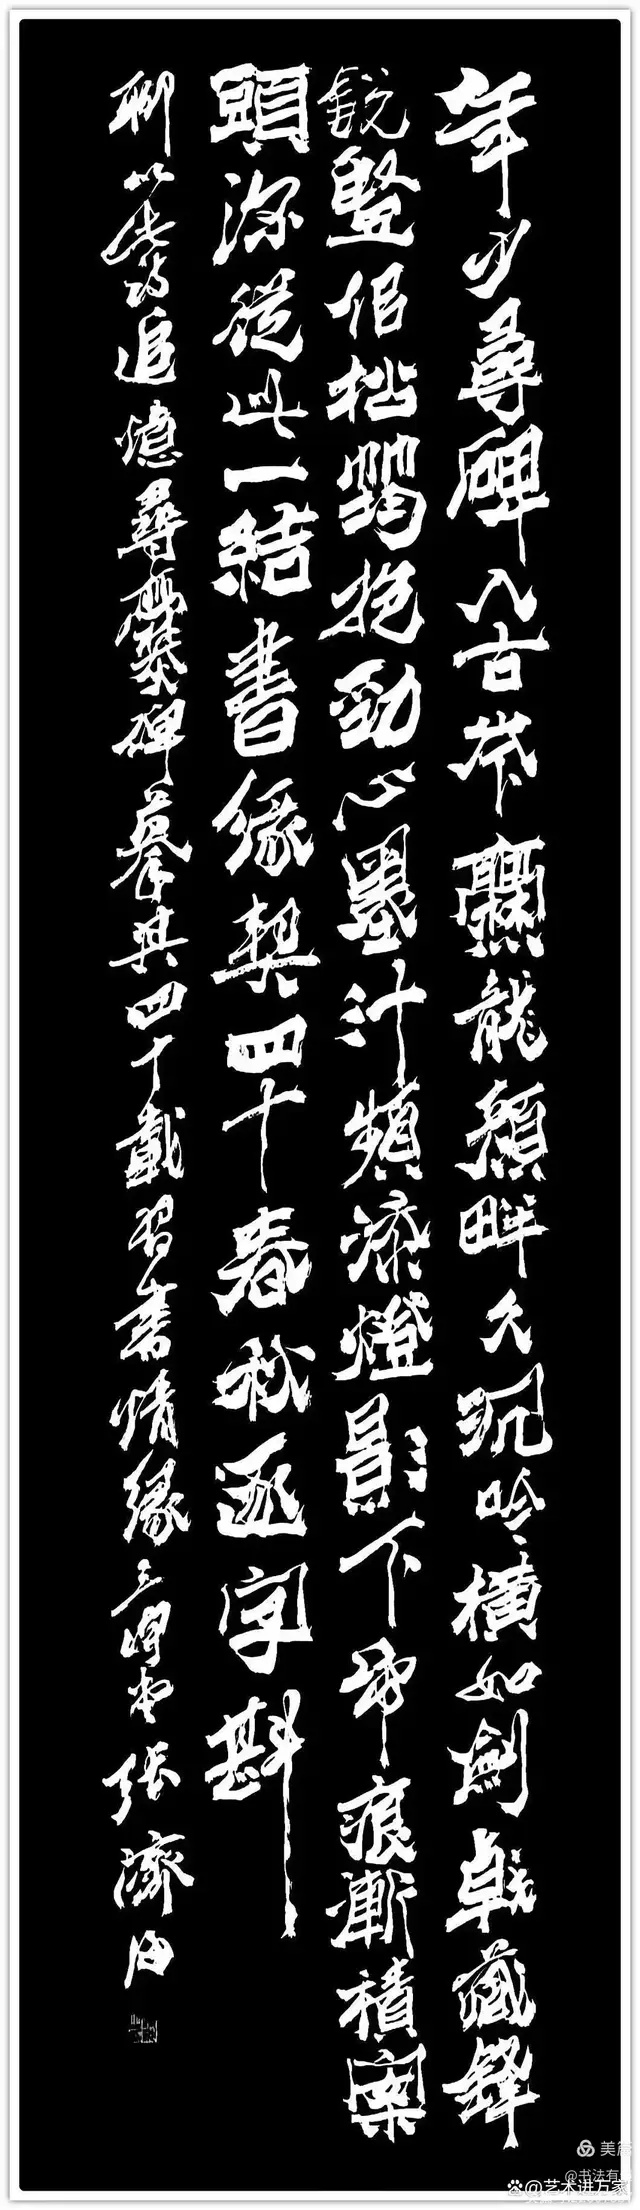 年少尋碑入古爨龍顏畔久沉吟橫如劍戟藏鋒
銳豎似松筠抱勁心墨汁頻添燈影下帋痕漸積案
頭深從此一結書緣契四十春秋逐字斟
聊以此詩追憶尋兩爨碑摹其四十載習書情緣三堂張濟海
美篇
@书法有
艺术进万家